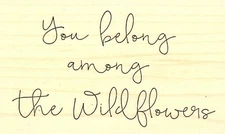 You belong
among
the Wildflowers